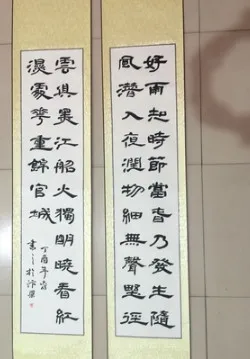 好雨知時節當春乃發生隨
風潛入夜潤物細無聲野徑
雲俱黑江船火獨明曉看紅
濕處花重錦官城
丁酉年
書於